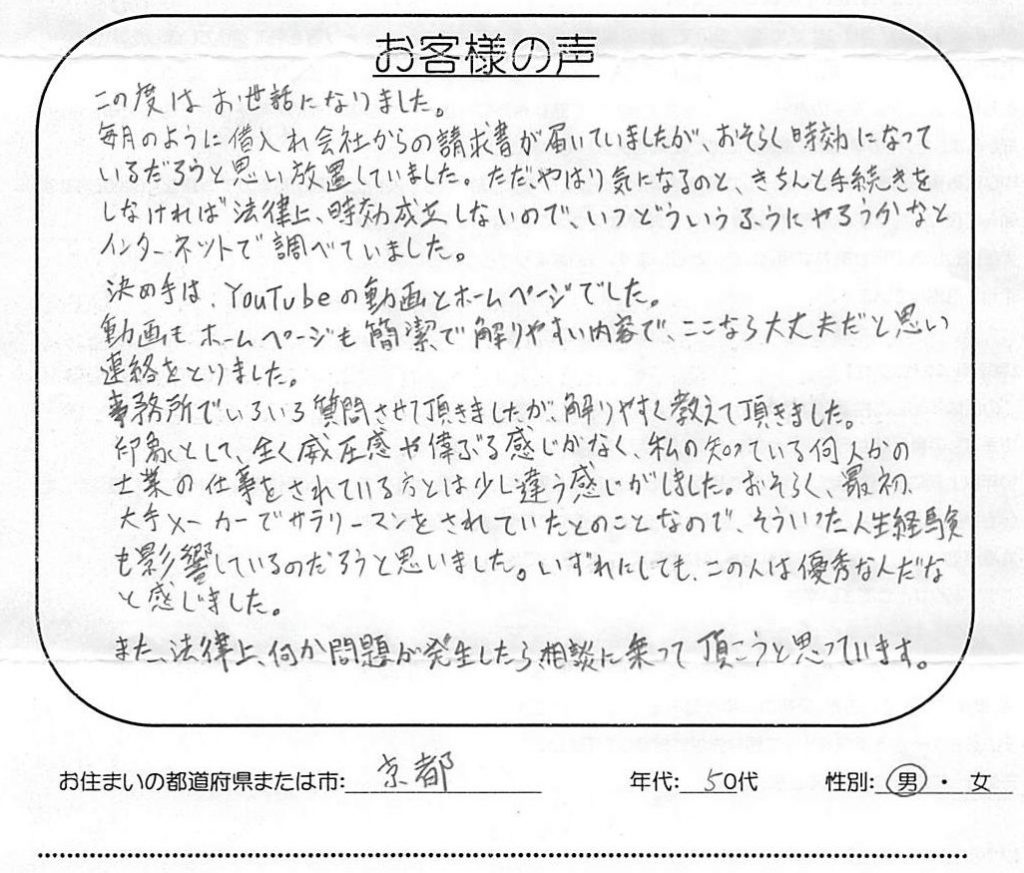 お客様の声
この度はお世話になりました。
毎月のように借入れ会社からの請求書が届いていましたが、おそらく時効になって
いるだろうと思い放置していました。ただやはり気になるのと、きちんと手続きを
しなければ法律上、時効成立しないので、いつどういうふうにやろうかなと
インターネットで調べていました。
決め手は、YouTubeの動画とホームページでした。
動画もホームページも簡潔で解りやすい内容で、ここなら大丈夫だと思い
連絡をとりました。
事務所でいろいろ質問させて頂きましたが、解りやすく教えて頂きました。
印象として、全く威圧感や偉ぶる感じがなく、私の知っている何人かの
士業の仕事をされている方とは少し違う感いがしました。おそらく、最初、
大手メーカーでサラリーマンをされていたとのことなので、そういった人生経験
も影響しているのだろうと思いました。いずれにしても、この人は優秀なんだな
と感じました。
また、法律上、何か問題が発生したら相談に乗って頂こうと思っています。
お住まいの都道府県または市: 京都 年代: 50代 性別: 男 ・ 女